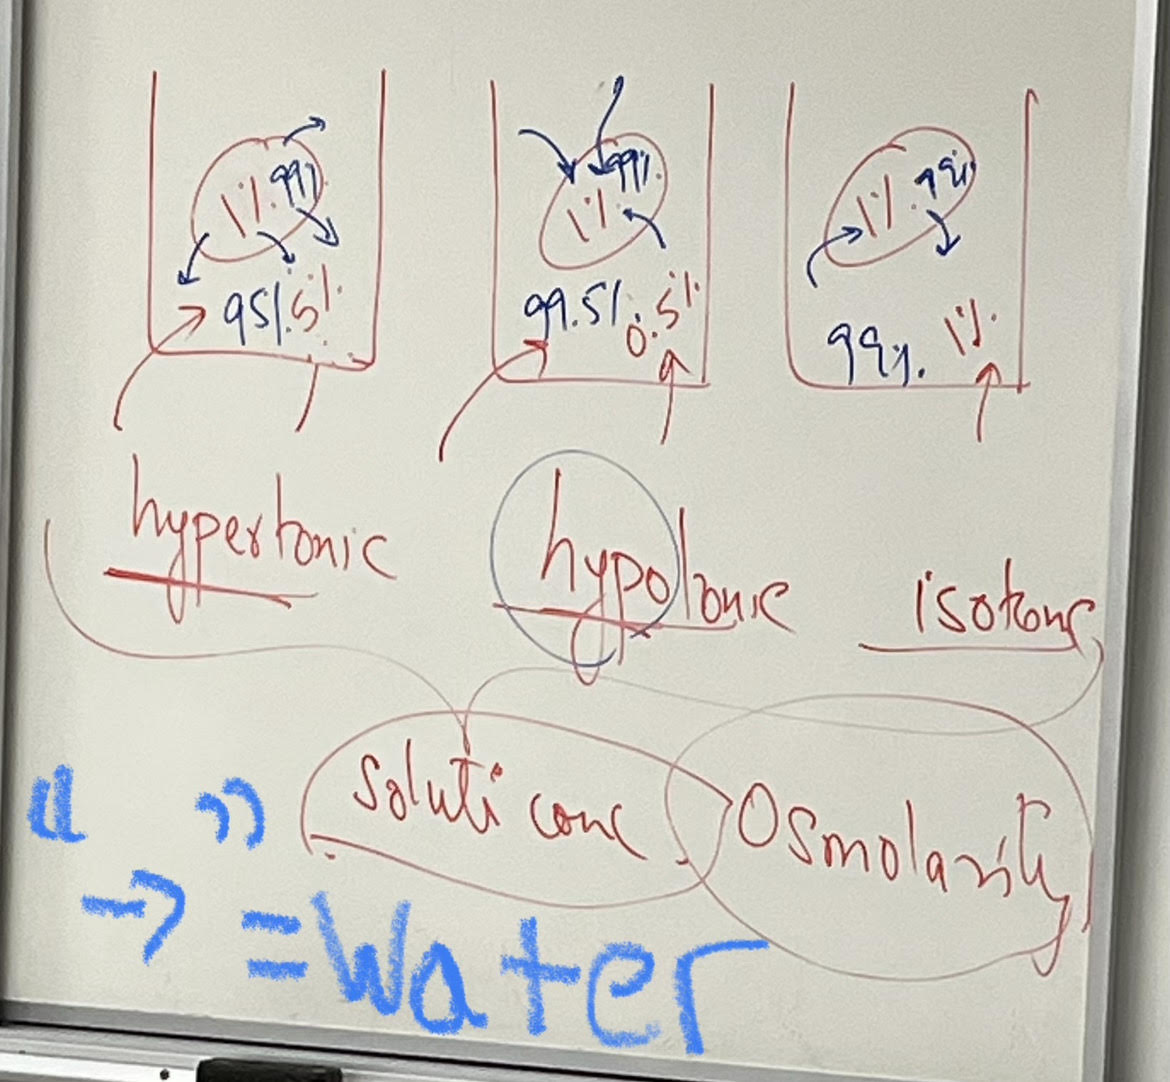 1% 99%
95% 5%
1% 99%
99.5% 0.5%
1% 99%
99% 1%
hypertonic
hypotonic
isotonic
Soluti conc
Osmolarity
" "
→ = Water